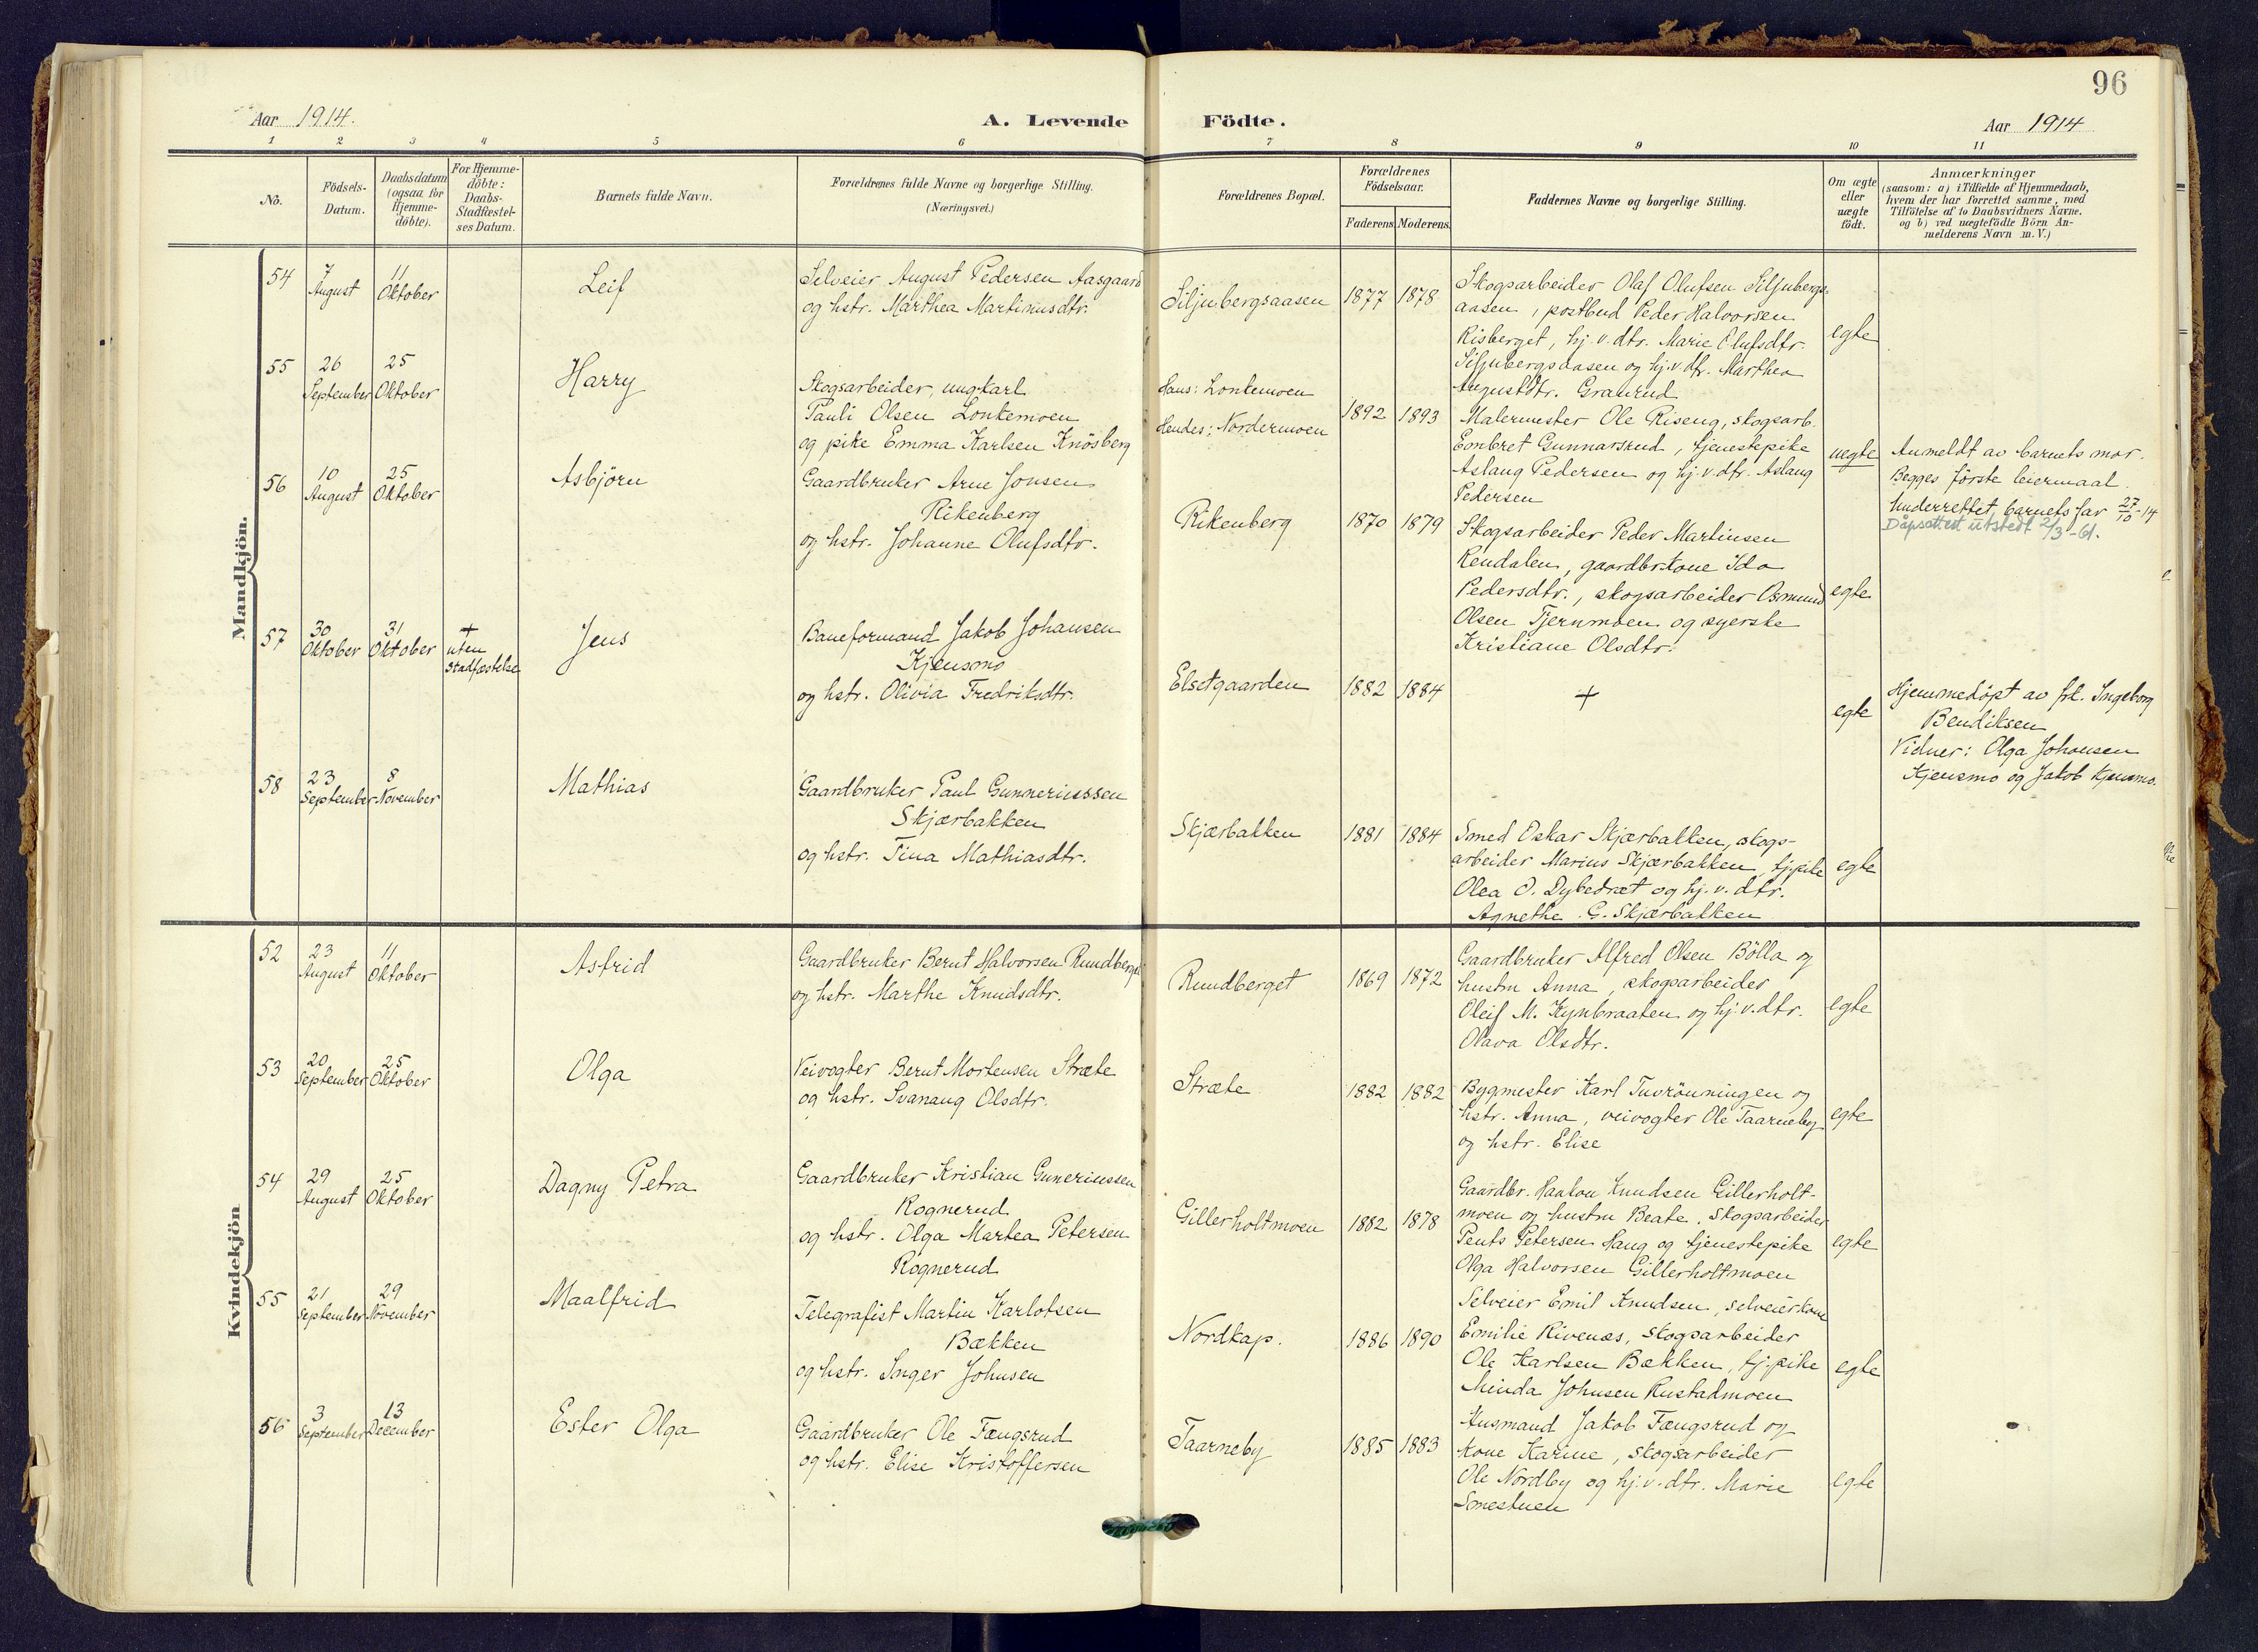 96
Aar 1914.
A. Levende Födte.
Aar 1914
1 2 3 4 5 6 7 8 9 10 11
No.
Födsels-
Datum.
Daabsdatum
(ogsaa for
Hjemme-
döbte).
For Hjemme-
döbte:
Daabs-
Stadfæstel-
ses Datum.
Barnets fulde Navn.
Forældrenes fulde Navne og borgerlige Stilling.
(Næringsvei.)
Forældrenes Bopæl.
Forældrenes
Födselsaar.
Faderens Moderens.
Faddernes Navne og borgerlige Stilling.
Om ægte
eller
uægte
födt.
Anmærkninger
(saasom: a) i Tilfælde af Hjemmedaab,
hvem der har forrettet samme, med
Tilföielse af to Daabsvidners Navne.
og b) ved uægtefödte Börn An-
melderens Navn m. V.)
Mandkjön.
54
7
August
11
Oktober
Leif
Selveier August Pedersen Aasgaard
og hstr. Marthea Martinusdtr.
Siljubergsaasen
1877
1878
Skogsarbeider Olaf Olufsen Siljubergs-
aasen, postbud Peder Halvorsen
Risberget, hj. v. dtr. Marie Olufsdtr.
Siljubergsaasen og hj. v. dtr. Marthea
Augustdtr. Granrud
egte
55
26
September
25
Oktober
Harry
Skogsarbeider, ungkarl
Pauli Olsen Lontemoen
og pike Emma Karlsen Knösberg
Hans: Lontemoen
Hendes: Nordermoen
1892
1893
Malermester Ole Riseng, skogsarb.
Embret Gunnarsrud, tjenestepike
Aslaug Pedersen og hj. v. dtr. Aslaug
Pedersen
uegte
Anmeldt av barnets mor.
Begges förste leiermaal.
Underrettet barnets far 27/10-14
Dåpsattest utstedt 2/3-61.
56
10
August
25
Oktober
Asbjörn
Gaardbruker Arne Jonsen
Rikenberg
og hstr. Johanne Olufsdtr.
Rikenberg
1870
1879
Skogsarbeider Peder Martinsen
Rendalen, gaardbr.kone Ida
Pedersdtr., skogsarbeider Osmund
Olsen Tjernmoen og syerske
Kristiane Olsdtr.
egte
57
30
Oktober
31
Oktober
+
uten
stadfæstelse
Jens
Baneformand Jakob Johansen
Kjensmo
og hstr. Olivia Fredriksdtr.
Elsetgaarden
1882
1884
+
egte
Hjemmedöpt av frk. Ingeborg
Bendiksen
Vidner: Olga Johansen
Kjensmo og Jakob Kjensmo.
58
23
September
8
November
Mathias
Gaardbruker Paul Gunneriussen
Skjærbakken
og hstr. Tina Mathiasdtr.
Skjærbakken
1881
1884
Smed Oskar Skjærbakken, skogs-
arbeider Marius Skjærbakken, tj.pike
Olea O. Dybedræt og hj. v. dtr.
Agnethe G. Skjærbakken
egte
Kvindekjön
52
23
August
11
Oktober
Astrid
Gaardbruker Bernt Halvorsen Rundberget
og hstr. Marthe Knudsdtr.
Rundberget
1869
1872
Gaardbruker Alfred Olsen Bölla og
hustru Anna, skogsarbeider
Oleif M. Kynbraaten og hj. v. dtr.
Olava Olsdtr.
egte
53
20
September
25
Oktober
Olga
Veivogter Bernt Mortensen Stræte
og hstr. Svanaug Olsdtr.
Stræte
1882
1882
Bygmester Karl Tuvrönningen og
hstr. Anna, veivogter Ole Taarneby
og hstr. Elise
egte
54
29
August
25
Oktober
Dagny Petra
Gaardbruker Kristian Guneriussen
Rognerud
og hstr. Olga Martea Petersen
Rognerud
Gillerholtmoen
1882
1878
Gaardbr. Haakon Knudsen Gillerholt-
moen og hustru Beate, skogsarbeider
Petersen Haug og tjenestepike
Olga Halvorsen Gillerholtmoen
egte
55
21
September
29
November
Maalfrid
Telegrafist Martin Karlotsen
Bækken
og hstr. Inger Johnsen
Nordkap.
1886
1890
Selveier Emil Knudsen, selveierkone
Emilie Rivenæs, skogsarbeider
Ole Karlsen Bækken, tj.pike
Minda Johnsen Rustadmoen
egte
56
3
September
13
December
Ester Olga
Gaardbruker Ole Fængsrud
og hstr. Elise Kristoffersen
Taarneby
1885
1883
Husmand Jakob Fængsrud og
kone Karine, skogsarbeider
Ole Nordby og hj. v. dtr. Marie
Smestuen
egte